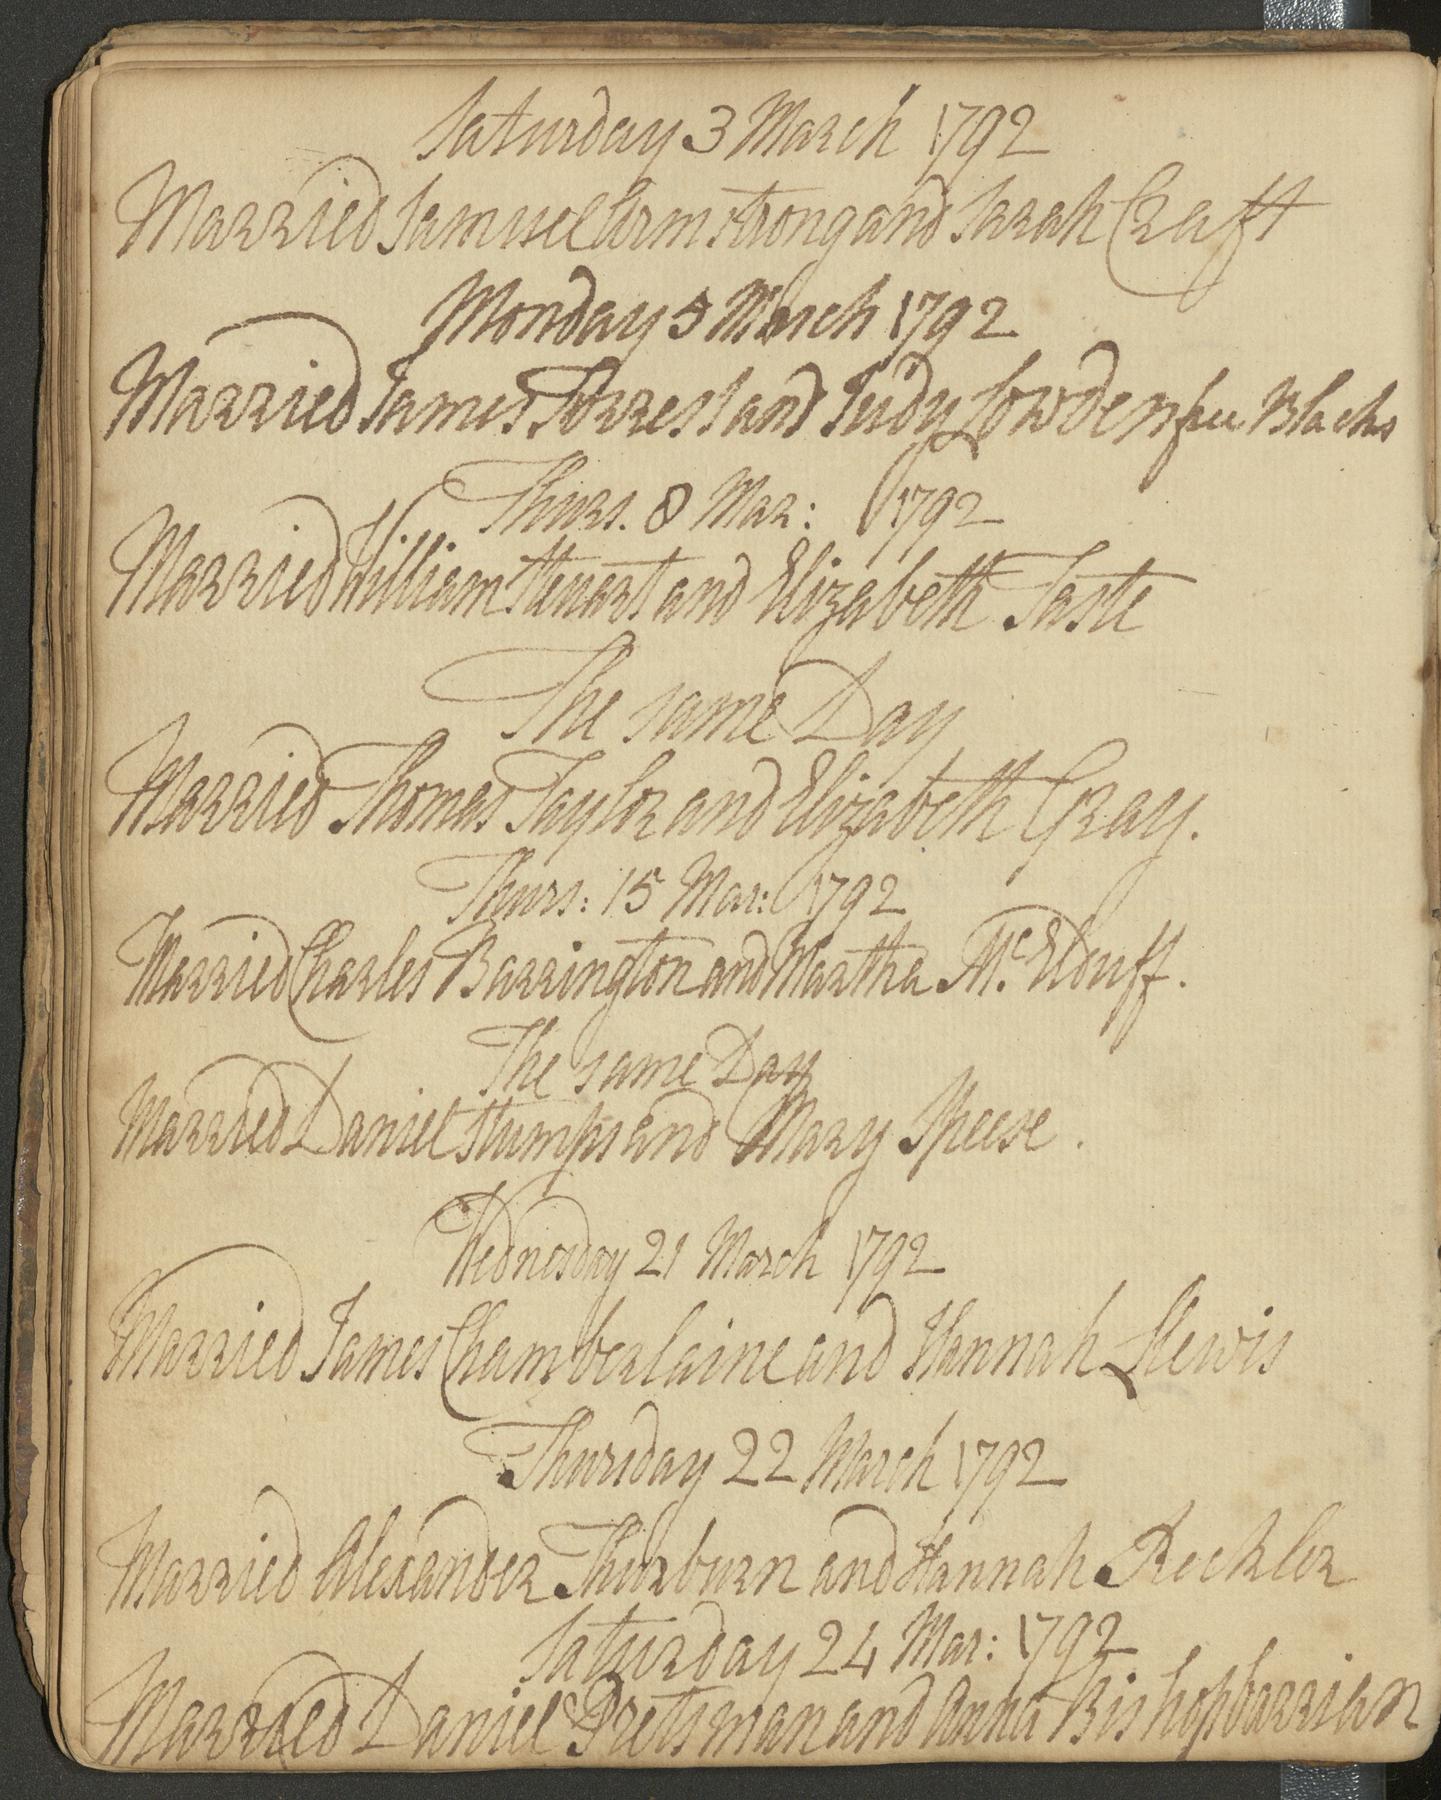 Saturday 3 March 1792
Married Samuel Armstrong and Sarah Craft
Monday 5 March 1792
Married James Forress and Judy Lowden free Blacks
Thurs. 8 Mar: 1792
Married William Steuart and Elizabeth Taste
The same Day
Married Thomas Taylor and Elizabeth Gray.
Thurs: 15 Mar: 1792
Married Charles Barrington and Martha McElduff.
The same Day
Married Daniel Stumps and Mary Speese.
Wednesday 21 March 1792
Married James Chamberlaine and Hannah Llewis
Thursday 22 March 1792
Married Alexander Thurburn and Hannah Reckler
Saturday 24 Mar: 1792
Married Daniel Pretsman and Anna Bishopbarrian